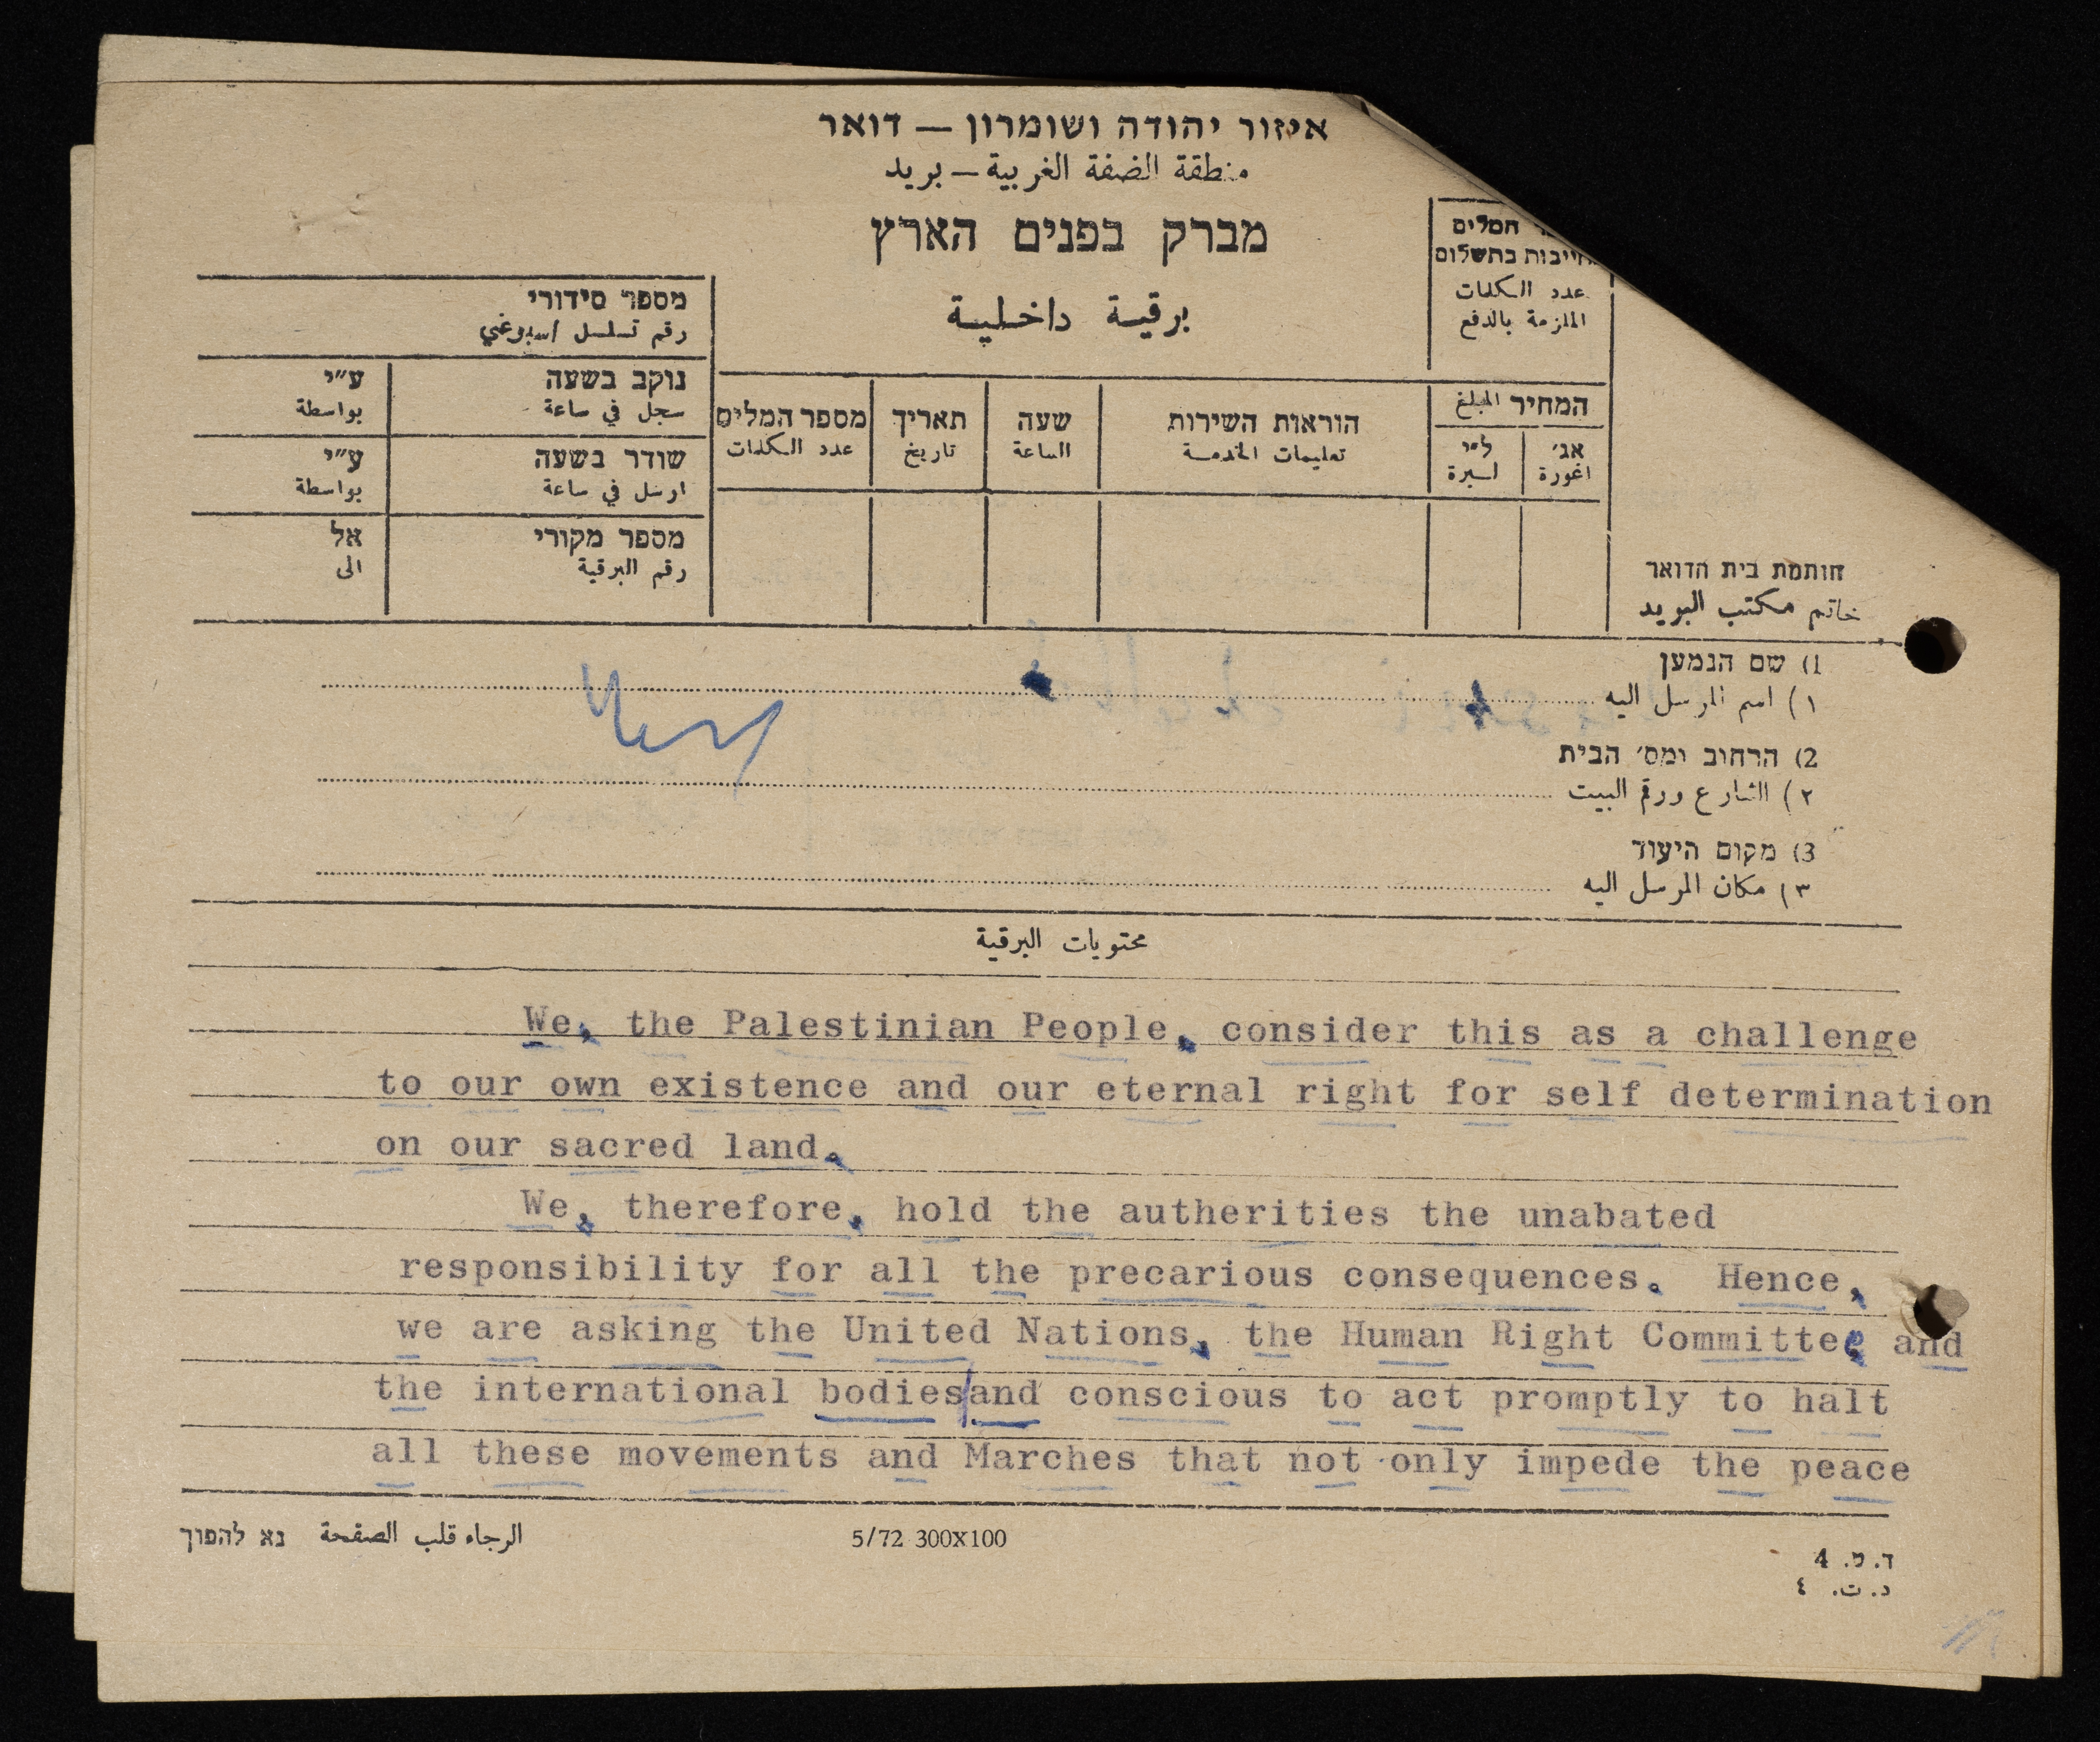 איזור יהודה ושומרון — דואר
منطقة الضفة الغربية — بريد
מברק בפנים הארץ
برقية داخلية
המלים
חייבות בתשלום
عدد الكلمات
الملزمة بالدفع
מספר סידורי
رقم تسلسل اسبوعي
נוקב בשעה ע״י
سجل في ساعة بواسطة
שודר בשעה ע״י
ارسل في ساعة بواسطة
מספר מקורי אל
رقم البرقية الى
המחיר المبلغ
אג׳ ל״י
اغورة ليرة
הוראות השירות שעה תאריך מספר המלים
تعليمات الخدمة الساعة تاريخ عدد الكلمات
חותמת בית הדואר
خاتم مكتب البريد
1) שם הנמען
١) اسم المرسل اليه
2) הרחוב ומס׳ הבית
٢) الشارع ورقم البيت
3) מקום היעוד
٣) مكان المرسل اليه
محتويات البرقية
We, the Palestinian People, consider this as a challenge
to our own existence and our eternal right for self determination
on our sacred land.
We, therefore, hold the autherities the unabated
responsibility for all the precarious consequences. Hence,
we are asking the United Nations, the Human Right Committee and
the international bodies/and conscious to act promptly to halt
all these movements and Marches that not only impede the peace
الرجاء قلب الصفحة נא להפוך
5/72 300X100
ד. ט. 4
د. ت. ٤